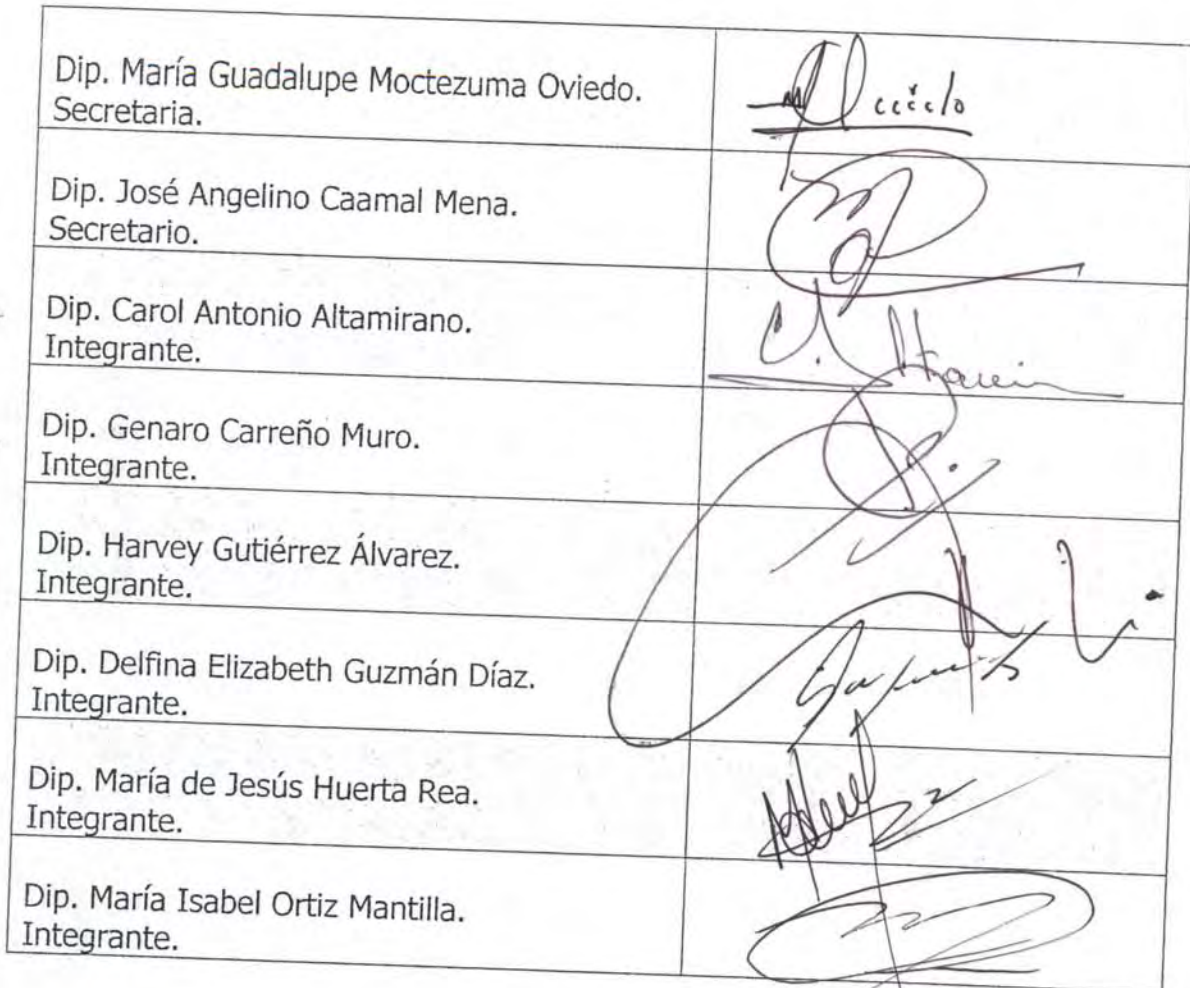 Dip. María Guadalupe Moctezuma Oviedo.
Secretaria.
Dip. José Angelino Caamal Mena.
Secretario.
Dip. Carol Antonio Altamirano.
Integrante.
Dip. Genaro Carreño Muro.
Integrante.
Dip. Harvey Gutiérrez Álvarez.
Integrante.
Dip. Delfina Elizabeth Guzmán Díaz.
Integrante.
Dip. María de Jesús Huerta Rea.
Integrante.
Dip. María Isabel Ortiz Mantilla.
Integrante.